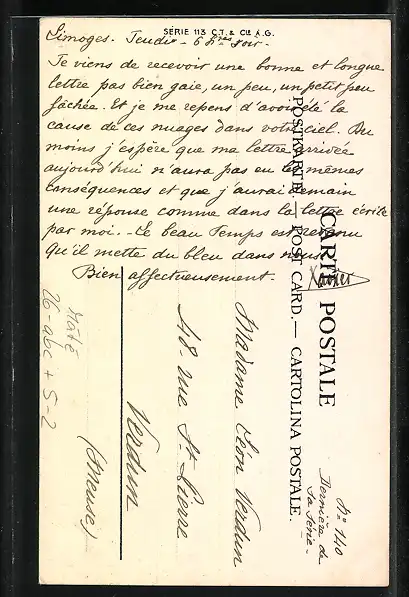 SÉRIE 113 C.T. & Cie A.G.
Limoges. Jeudi - 6 hres soir -
Je viens de recevoir une bonne et longue
lettre pas bien gaie, un peu, un petit peu
fâchée. Et je me repens d'avoir été la
cause de ces nuages dans votre ciel. Du
moins j'espère que ma lettre arrivée
aujourd'hui n'aura pas eu les mêmes
conséquences et que j'aurai demain
une réponse comme dans la lettre écrite
par moi. - Le beau Temps est revenu
Qu'il mette du bleu dans nous.
Bien affectueusement. Xavier
CARTE POSTALE
POSTKARTE. — POST CARD. — CARTOLINA POSTALE.
No 140
Dernière de
la Série -
Madame Léon Verdun
48 - rue St-Pierre
Verdun
(Meuse)
26-abc + 5-2